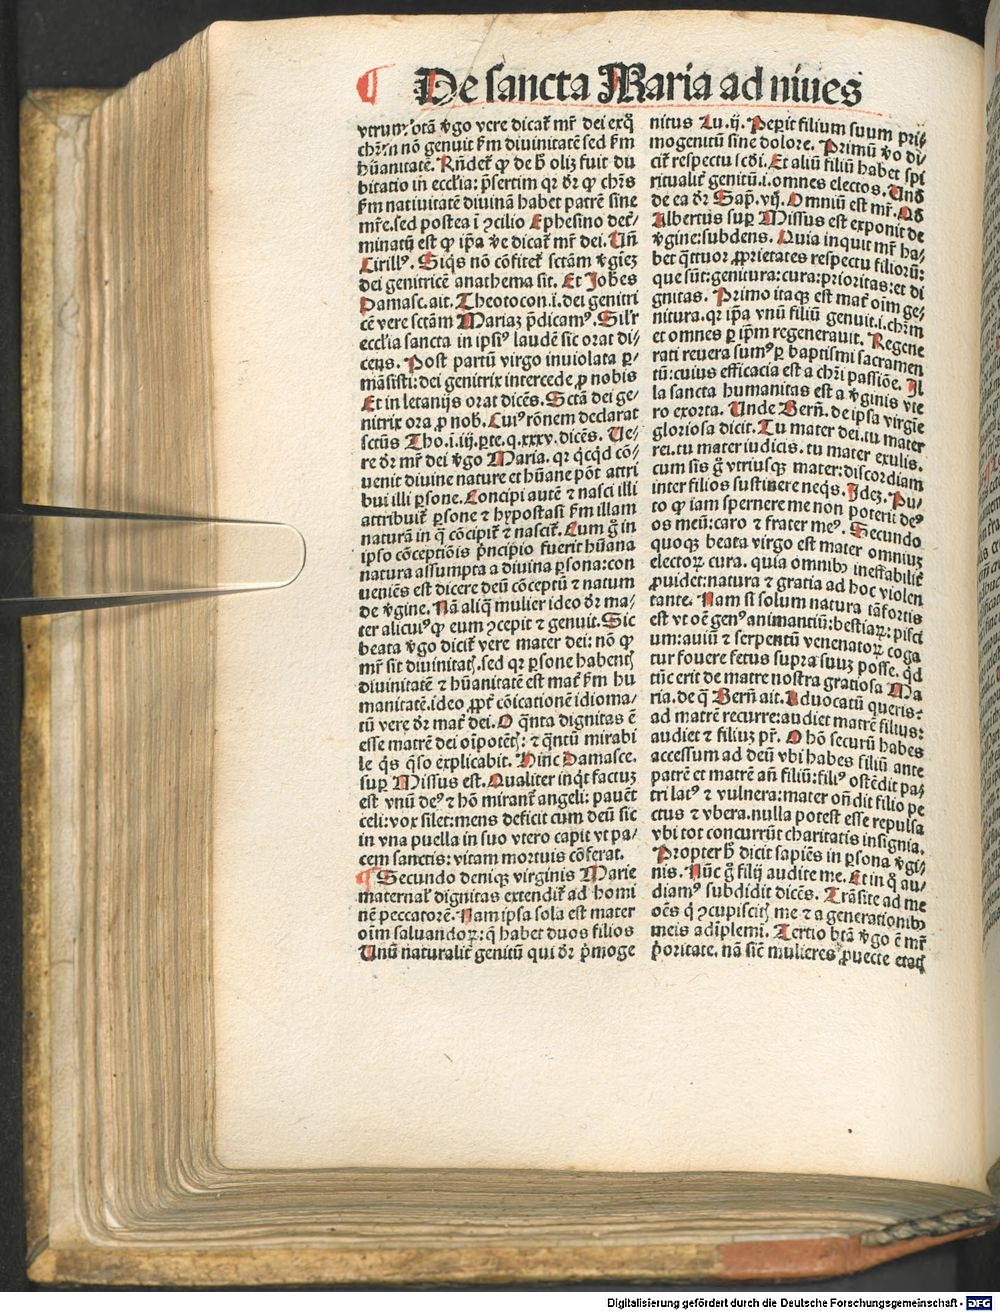 ¶ De sancta Maria ad niues
vtrum btā v̄go vere dicat̄ mr̄ dei ex q̄
chr̄m nō genuit s̄m diuinitatē sed s̄m
hūanitatē. Rn̄det̄ ꝙ de h̄ olīꝫ fuit du
bitatio in eccl'ia: p̄sertim qꝛ dr̄ ꝙ chr̄s
s̄m natiuitatē diuinā habet patrē sine
mr̄e. sed postea ī ꝯcilio Ephesino det̄⸗
minatū est ꝙ ip̄a ve dicat̄ mr̄ dei. Un̄
Cirillꝰ. Siq̄s nō cōfitet̄ sctām v̄gīeꝫ
dei genitricē anathema sit. Et Joh̄es
Damasc. ait. Theotocon .i. dei genitri
cē vere sctām Mariaꝫ p̄dicamꝰ. Sil'r
eccl'ia sancta in ipsiꝰ laudē sic orat di⸗
cens. Post partū virgo inuiolata ꝑ⸗
māsisti: dei genitrix intercede ꝓ nobis
Et in letanijs orat dicēs. Sctā dei ge⸗
nitrix ora ꝓ nob̄. Cuiꝰ rōnem declarat
sctūs Tho. i. iij. ꝑte. q. xxxv. dicēs. Ue⸗
re dr̄ mr̄ dei v̄go Maria. qꝛ qcqd cō⸗
uenit diuine nature et hūane pōt attri
bui illi ꝑsone. Concipi autē ⁊ nasci illi
attribuit̄ ꝑsone ⁊ hypostasi s̄m illam
naturā in q̄ cōcipit̄ ⁊ nascit̄. Cum g̊ in
ipso cōceptiōis p̄ncipio fuerit hūana
natura assumpta a diuina ꝑsona: con
ueniēs est dicere deū cōceptū ⁊ natum
de v̄gine. Nā aliq̄ mulier ideo dr̄ ma⸗
ter alicuiꝰ ꝙ eum ꝯcepit ⁊ genuit. Sic
beata v̄go dicit̄ vere mater dei: nō ꝙ
mr̄ sit diuinitatꝭ. sed qꝛ ꝑsone habentꝭ
diuinitatē ⁊ hūanitatē est mat̄ s̄m hu
manitatē. ideo ꝓpt̄ cōicationē idioma⸗
tū vere dr̄ mat̄ dei. O q̄nta dignitas ē
esse matrē dei oīpotētꝭ: ⁊ q̄ntū mirabi
le q̄s q̄so explicabit. Hinc Damasce.
suꝑ Missus est. Qualiter inq̄t factus
est vnū deꝰ ⁊ hō mirant̄ angeli: pauēt
celi: vox silet: mens deficit cum deū sic
in vna puella in suo vtero capit vt pa⸗
cem sanctis: vitam mortuis cōferat.
¶ Secundo deniqꝫ virginis Marie
maternal' dignitas extendit̄ ad homi
nē peccatorē. Nam ipsa sola est mater
oīm saluandoꝝ: q̄ habet duos filios
Unū naturalit̄ genitū qui dr̄ p̄moge
nitus Lu. ij. Peꝑit filium suum pri⸗
mogenitū sine dolore. Primū v̄o di⸗
cit̄ respectu scd̄i. Et aliū filiū habet spi
ritualit̄ genitū .i. omnes electos. Und̄
de ea dr̄ Sap. vij. Omniū est mr̄. Qd̄
Albertus suꝑ Missus est exponit de
v̄gine: subdens. Quia inquit mr̄ ha⸗
bet q̄ttuor ꝓprietates respectu filiorū:
que sūt: genitura: cura: prioritas: et di
gnitas. Primo itaqꝫ est mat̄ oīm ge⸗
nitura. qꝛ ip̄a vnū filiū genuit .i. chr̄m
et omnes ꝑ ip̄m regenerauit. Regene
rati reuera sumꝰ ꝑ baptismi sacramen
tū: cuius efficacia est a chr̄i passiōe. Il
la sancta humanitas est a v̄ginis vte
ro exorta. Unde Bern̄. de ipsa virgīe
gloriosa dicit. Tu mater dei. tu mater
rei. tu mater iudicis. tu mater exulis.
cum sis g̊ vtriusqꝫ mater: discordiam
inter filios sustinere neq̄s. Ideꝫ. Pu⸗
to ꝙ iam spernere me non poterit deꝰ
os meū: caro ⁊ frater meꝰ. Secundo
quoqꝫ beata virgo est mater omniuꝫ
electoꝝ cura. quia omnibꝰ ineffabilit̄
ꝓuidet: natura ⁊ gratia ad hoc violen
tante. Nam si solum natura tā fortis
est vt oē genꝰ animantiū: bestiaꝝ: pisci
um: auiū ⁊ serpentū venenatoꝝ coga
tur fouere fetus supra suuꝫ posse. qd
tūc erit de matre nostra gratiosa Ma
ria. de q̄ Bern̄ ait. Aduocatū queris:
ad matrē recurre: audiet matrē filius:
audiet ⁊ filiuꝫ pr̄. O hō securū habes
accessum ad deū vbi habes filiū ante
patrē et matrē an̄ filiū: filiꝰ ostēdit pa⸗
tri latꝰ ⁊ vulnera: mater on̄dit filio pe
ctus ⁊ vbera. nulla potest esse repulsa
vbi tot concurrūt charitatis insignia.
Propter h̄ dicit sapiēs in ꝑsona v̄gi⸗
nis. Nūc g̊ filij audite me. Et in q̄ au⸗
diamꝰ subdidit dicēs. Trāsite ad me
oēs q̇ ꝯcupiscitꝭ me ⁊ a generationibꝰ
meis adīplemi. Tertio btā v̄go ē mr̄
p̄oritate. nā sic̄ mulieres ꝓuecte etatꝭ